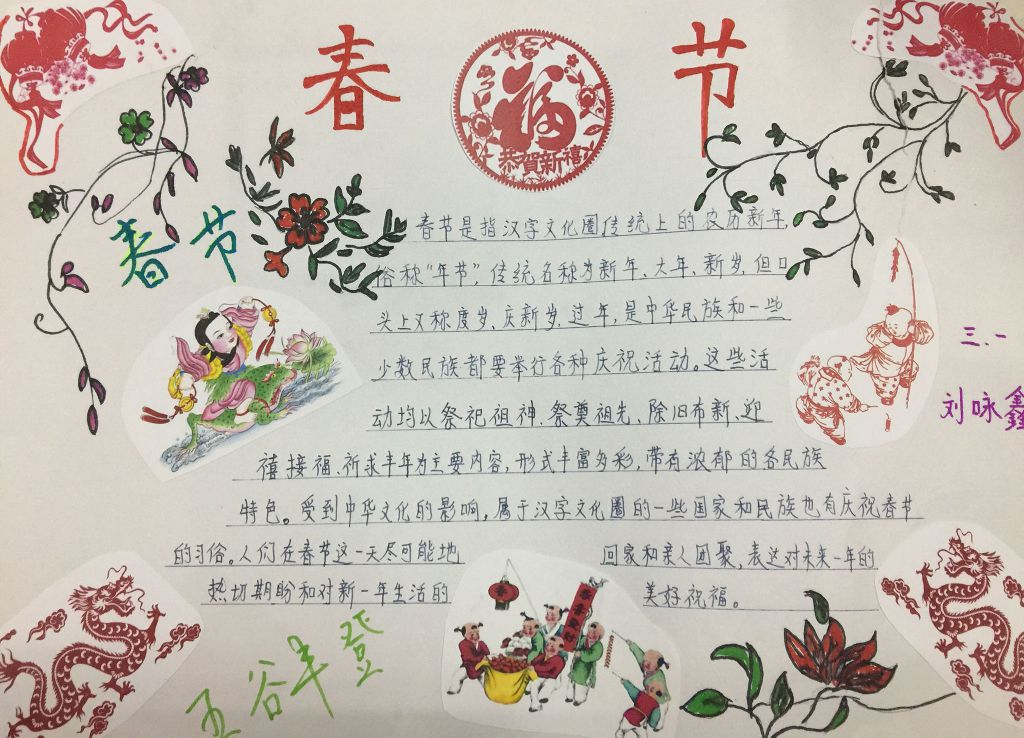 春 节
恭賀新禧
春节
春节是指汉字文化圈传统上的农历新年,
俗称“年节”,传统名称为新年、大年、新岁,但口
头上又称度岁、庆新岁、过年,是中华民族和一些
少数民族都要举行各种庆祝活动。这些活
动均以祭祀祖神、祭奠祖先、除旧布新、迎
禧接福、祈求丰年为主要内容,形式丰富多彩,带有浓郁的各民族
特色。受到中华文化的影响,属于汉字文化圈的一些国家和民族也有庆祝春节
的习俗。人们在春节这一天尽可能地 回家和亲人团聚,表达对未来一年的
热切期盼和对新一年生活的 美好祝福。
三.一
刘咏鑫
五谷丰登
春